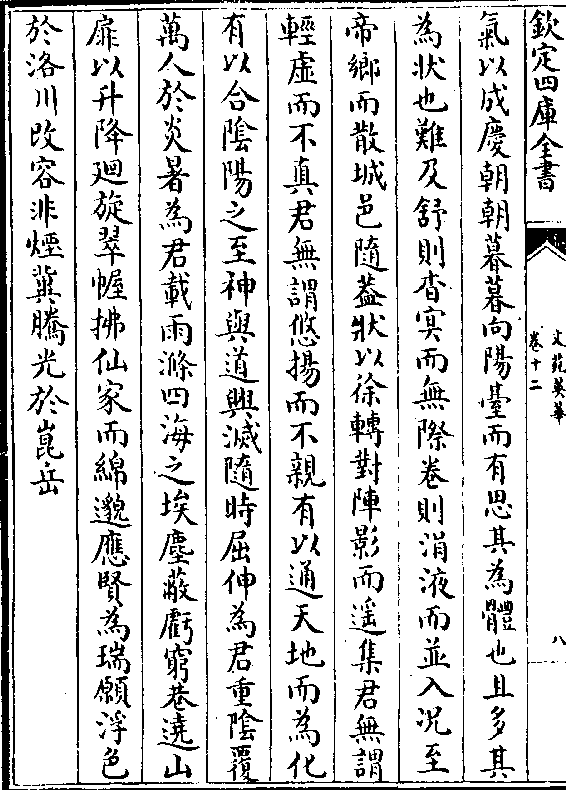 欽定四庫全書
文苑英華
卷十二
八
氣以成慶朝朝暮暮向陽臺而有思其為體也且多其
為狀也難及舒則杳冥而無際卷則涓液而並入況至
帝鄉而散城邑隨葢狀以徐轉對陣影而遥集君無謂
輕虛而不真君無謂悠揚而不親有以通天地而為化
有以合陰陽之至神與道興滅隨時屈伸為君重陰覆
萬人於炎暑為君載雨滌四海之埃塵蔽虧窮巷遶山
扉以升降廻旋翠幄拂仙家而綿邈應賢為瑞願浮色
於洛川改容非煙冀騰光於崑岳